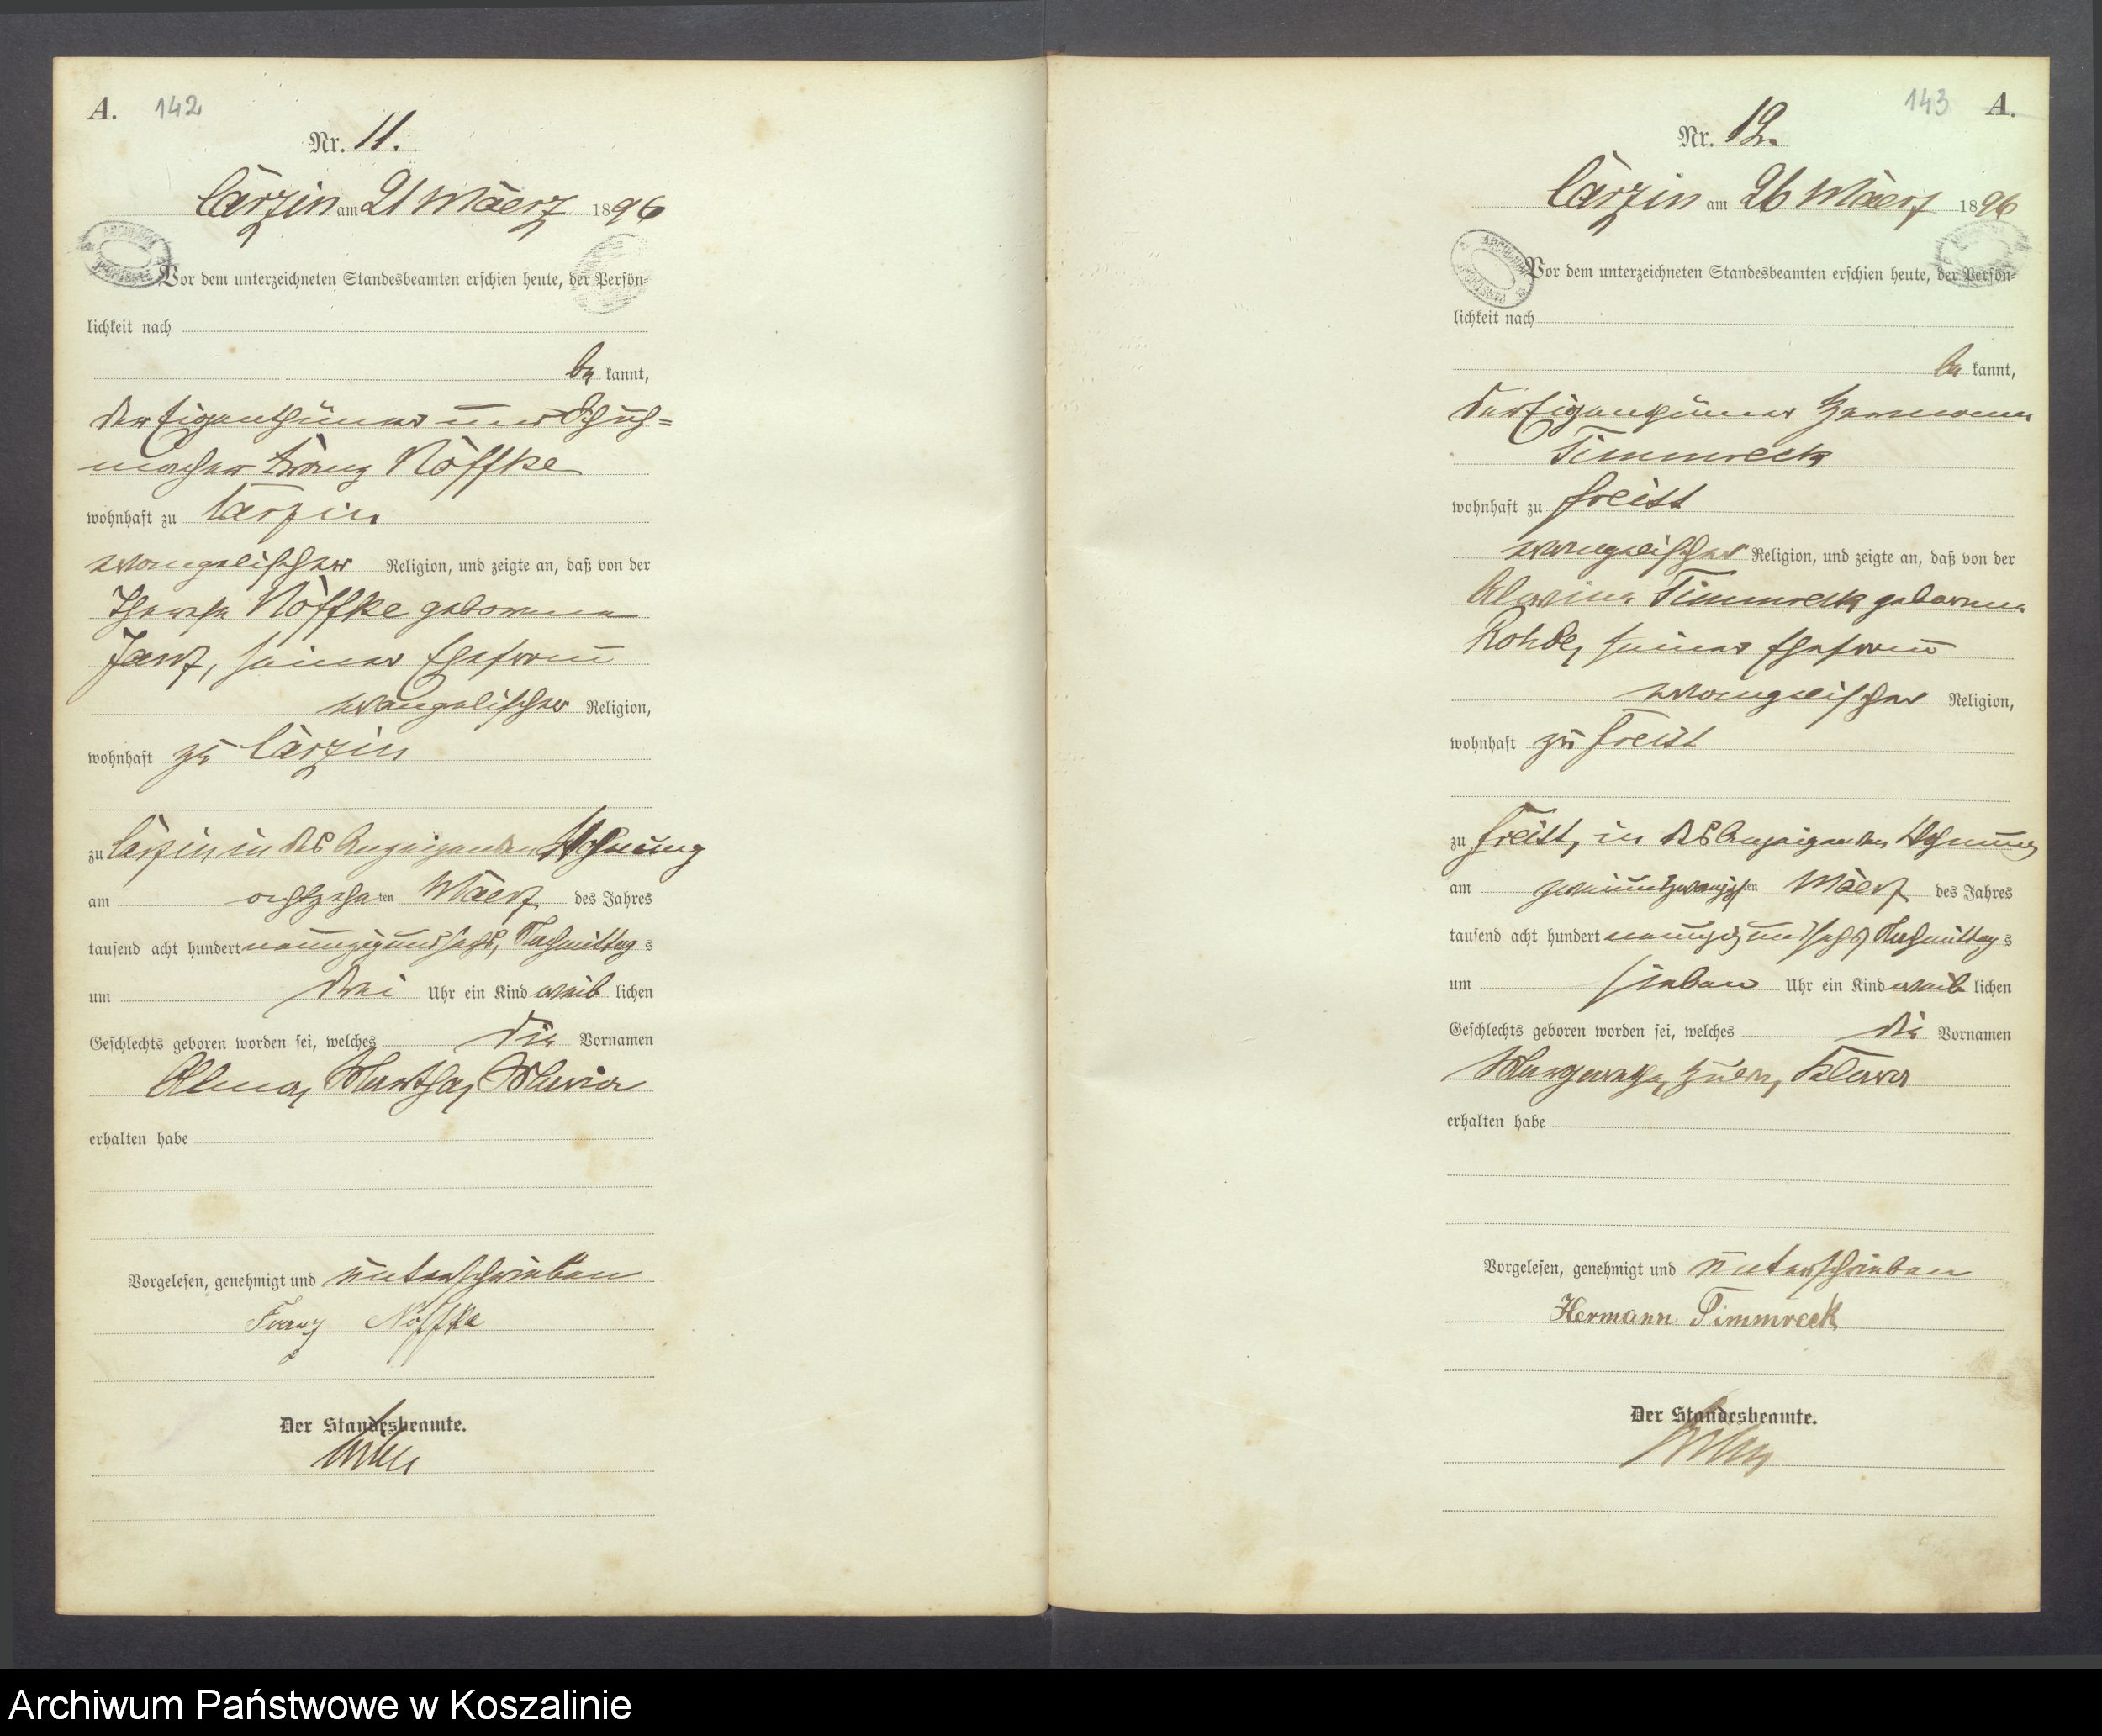 A. 142
Nr. 11.
Carzin am 21 Maerz 1896
ARCHIWUM PAŃSTWOWE
Vor dem unterzeichneten Standesbeamten erschien heute, der Persön-
lichkeit nach
be kannt,
der Eigenthümer und Schuh=
macher Franz Nöffke
wohnhaft zu Carzin
evangelischer Religion, und zeigte an, daß von der
Therese Nöffke geborenen
Janz, seiner Ehefrau
evangelischer Religion,
wohnhaft zu Carzin
zu Carzin in des Anzeigenden Wohnung
am achtzehn ten Maerz des Jahres
tausend acht hundert neunzig und sechs, Nachmittag s
um drei Uhr ein Kind weib lichen
Geschlechts geboren worden sei, welches die Vornamen
Alma, Martha, Maria
erhalten habe
Vorgelesen, genehmigt und unterschrieben
Franz Nöffke
Der Standesbeamte.
143 A.
Nr. 12.
Carzin am 26 Maerz 1896
ARCHIWUM PAŃSTWOWE
Vor dem unterzeichneten Standesbeamten erschien heute, der Persön-
lichkeit nach
be kannt,
der Eigenthümer Hermann
Timmreck
wohnhaft zu Freist
evangelischer Religion, und zeigte an, daß von der
Alwine Timmreck geborenen
Rohde, seiner Ehefrau
evangelischer Religion,
wohnhaft zu Freist
zu Freist, in des Anzeigenden Wohnung
am zweiundzwanzigs ten Maerz des Jahres
tausend acht hundert neunzig und sechs, Nachmittag s
um sieben Uhr ein Kind weib lichen
Geschlechts geboren worden sei, welches die Vornamen
Margarethe, Klara
erhalten habe
Vorgelesen, genehmigt und unterschrieben
Hermann Timmreck
Der Standesbeamte.
Archiwum Państwowe w Koszalinie